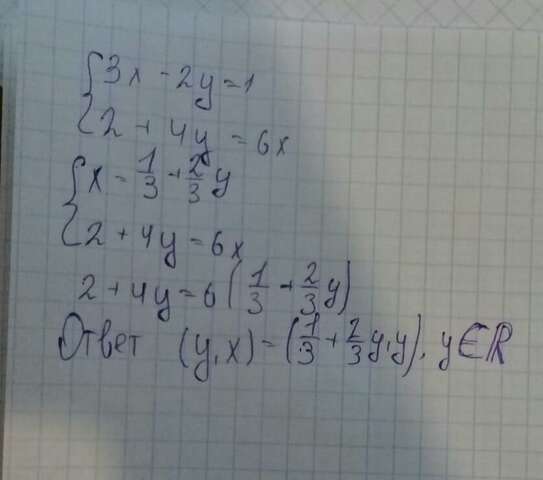 3x - 2y = 1
2 + 4y = 6x
x = 1/3 + 2/3 y
2 + 4y = 6x
2 + 4y = 6(1/3 + 2/3 y)
Ответ (y,x) = (1/3 + 2/3 y, y), y ∈ R